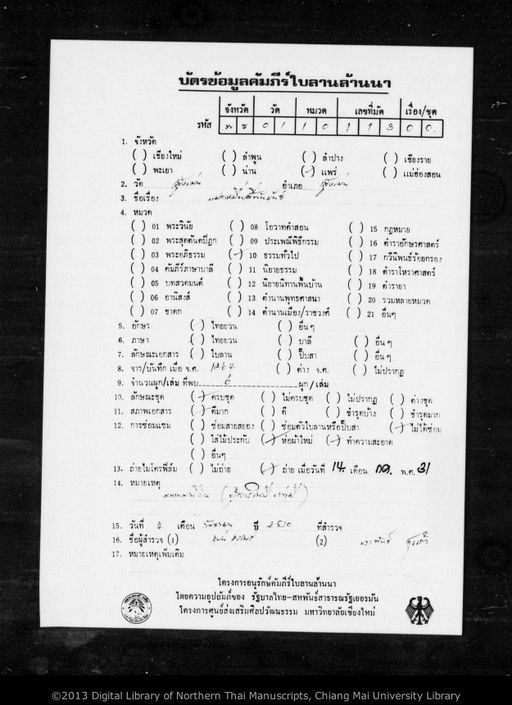 บัตรข้อมูลคัมภีร์ใบลานล้านนา
จังหวัด วัด หมวด เลขที่มัด เรื่อง/ชุด
รหัส พ ร 0 1 1 0 1 1 3 0 0
1. จังหวัด
( ) เชียงใหม่ ( ) ลำพูน ( ) ลำปาง ( ) เชียงราย
( ) พะเยา ( ) น่าน (✓) แพร่ ( ) แม่ฮ่องสอน
2. วัด สูงเม่น อำเภอ สูงเม่น
3. ชื่อเรื่อง
4. หมวด
( ) 01 พระวินัย ( ) 08 โอวาทคำสอน ( ) 15 กฎหมาย
( ) 02 พระสุตตันตปิฎก ( ) 09 ประเพณีพิธีกรรม ( ) 16 ตำราอักษรศาสตร์
( ) 03 พระอภิธรรม (✓) 10 ธรรมทั่วไป ( ) 17 กวีนิพนธ์ร้อยกรอง
( ) 04 คัมภีร์ภาษาบาลี ( ) 11 นิยายธรรม ( ) 18 ตำราโหราศาสตร์
( ) 05 บทสวดมนต์ ( ) 12 นิยายนิทานพื้นบ้าน ( ) 19 ตำรายา
( ) 06 อานิสงส์ ( ) 13 ตำนานพุทธศาสนา ( ) 20 รวมหลายหมวด
( ) 07 ชาดก ( ) 14 ตำนานเมือง/ราชวงศ์ ( ) 21 อื่นๆ
5. อักษร (✓) ไทยยวน ( ) อื่นๆ
6. ภาษา (✓) ไทยยวน ( ) บาลี ( ) อื่นๆ
7. ลักษณะเอกสาร (✓) ใบลาน ( ) ปั๊บสา ( ) อื่นๆ
8. จาร/บันทึก เมื่อ จ.ศ. ( ) ต่าง จ.ศ. ( ) ไม่ปรากฏ
9. จำนวนผูก/เล่ม ที่พบ 6 ผูก/เล่ม
10. ลักษณะชุด (✓) ครบชุด ( ) ไม่ครบชุด ( ) ไม่ปรากฏ ( ) ต่างชุด
11. สภาพเอกสาร (✓) ดีมาก ( ) ดี ( ) ชำรุดบ้าง ( ) ชำรุดมาก
12. การซ่อมแซม ( ) ซ่อมสายสยอง ( ) ซ่อมตัวใบลานหรือปั๊บสา (✓) ไม่ได้ซ่อม
( ) ใส่ไม้ประกับ (✓) ห่อผ้าใหม่ (✓) ทำความสะอาด
( ) อื่นๆ
13. ถ่ายไมโครฟิล์ม ( ) ไม่ถ่าย (✓) ถ่าย เมื่อวันที่ 14 เดือน กค. พ.ศ. 31
14. หมายเหตุ
15. วันที่ เดือน ปี 2530 ที่สำรวจ
16. ชื่อผู้สำรวจ (1) (2)
17. หมายเหตุเพิ่มเติม
โครงการอนุรักษ์คัมภีร์ใบลานล้านนา
โดยความอุปถัมภ์ของ รัฐบาลไทย-สหพันธ์สาธารณรัฐเยอรมัน
โครงการศูนย์ส่งเสริมศิลปวัฒนธรรม มหาวิทยาลัยเชียงใหม่
©2013 Digital Library of Northern Thai Manuscripts, Chiang Mai University Library